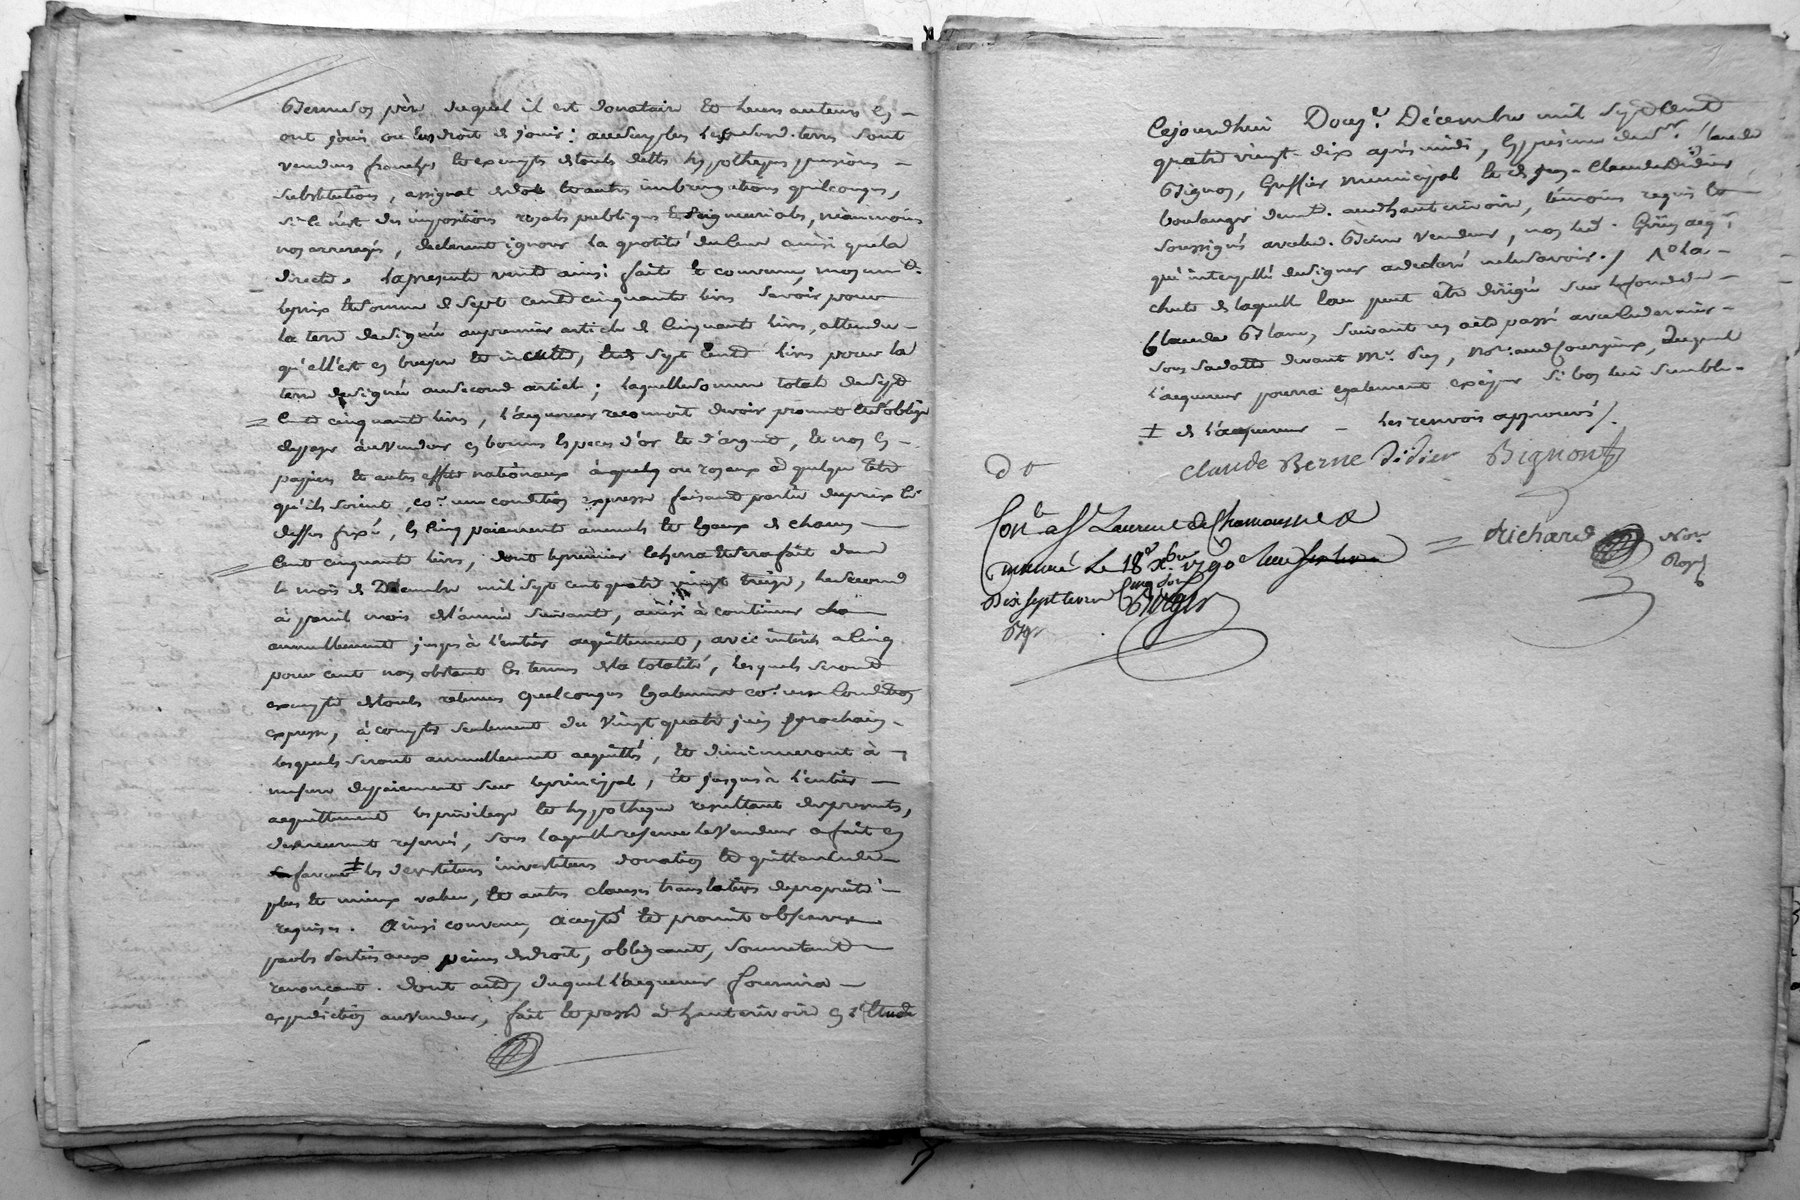 Berne son père duquel il est donataire et leurs auteurs en
ont joüi ou eu droit de joüir: au surplus lesd. terres sont
vendues franches et exemptes de toutes dettes hypotheques pensions
substitutions, assignat de dot et autres imbringations quelconques,
si ce n'est des impositions royales publiques et seigneuriales, néanmoins
nos arreragés, declarent ignorer la quotité de leur ainsi que la
directe. la presente vente ainsi faite et convenue, moyent.
le prix et somme de sept cent cinquante livres savoir pour
la terre designée au premier article de cinquante livres, attendu
qu'elle est en bruyere et inculte, et de sept cent livres pour la
terre designée au second article; laquelle somme totale de sept
cent cinquante livres, l'acquereur reconnoit devoir promet et s'oblige
de payer au vendeur en bonnes especes d'or et d'argent, et non en
papiers et autres effets nationaux à quels ou royaux à quelque titre
qu'ils soient, co.e une condition expresse faisant partie du prix ci
dessus fixé, en cinq paiements annuels et egaux de chacun
cent cinquante livres, dont le premier echerra et sera fait dans
le mois de Décembre mil sept cent quatre vingt treize, le second
à pareil mois de l'année suivante, ainsi à continuer
annuellement jusqu'à l'entier acquittement, avec interets a cinq
pour cent non obstant les termes de la totalité, lesquels seront
exempts de toutes retenues quelconques egalement co.e une condition
expresse, à compter seulement du vingt quatre juin prochain
lesquels seront annuellement acquittés, et diminueront à
mesure de paiement sur le principal, et jusques à l'entier
acquittement les privilege et hypotheque resultant des presentes,
demeurent reservés, sous laquelle reserve le vendeur a fait en
sa faveur ‡ les devetitures investitures donation et quittance de
plus et mieux value, et autres clauses translatives de propriété
requises. Ainsi convenu, accepté et promis observer
parles parties aux peines de droit, obligeant, soumettant
renonçant. dont acte, duquel l'acquereur fournira
expédition au vendeur, fait et passé à hauterivoire en l'Etude
Cejourdhui Douze Décembre mil sept cent
quatre vingt dix après midi, en presence de sr. Claude
Bignon, Greffier municipal et de sr. Claude Didier
boulanger demt. aud hauterivoire, témoins requis et
soussignés avec led. Berne vendeur, non led. acqr.
qui interpellé de signer a declaré ne le savoir./ 1º la
chute de laquelle l'eau peut etre dirigée sur le fonds de
Claude Blanc, suivant un acte passé avec ce dernier
sous sa datte devant Mr. , Nore. aud , duquel
l'acquereur pourra egalement exiger si bon lui semble.
‡ de l'acquereur — les renvois approuvés /.
Claude Berne Didier Bignon
Con.le a St. Laurent de Chamousset &
insinué le 18e Xbre 1790
Dix sept livres cinq sols
Richard Nore.
Royal